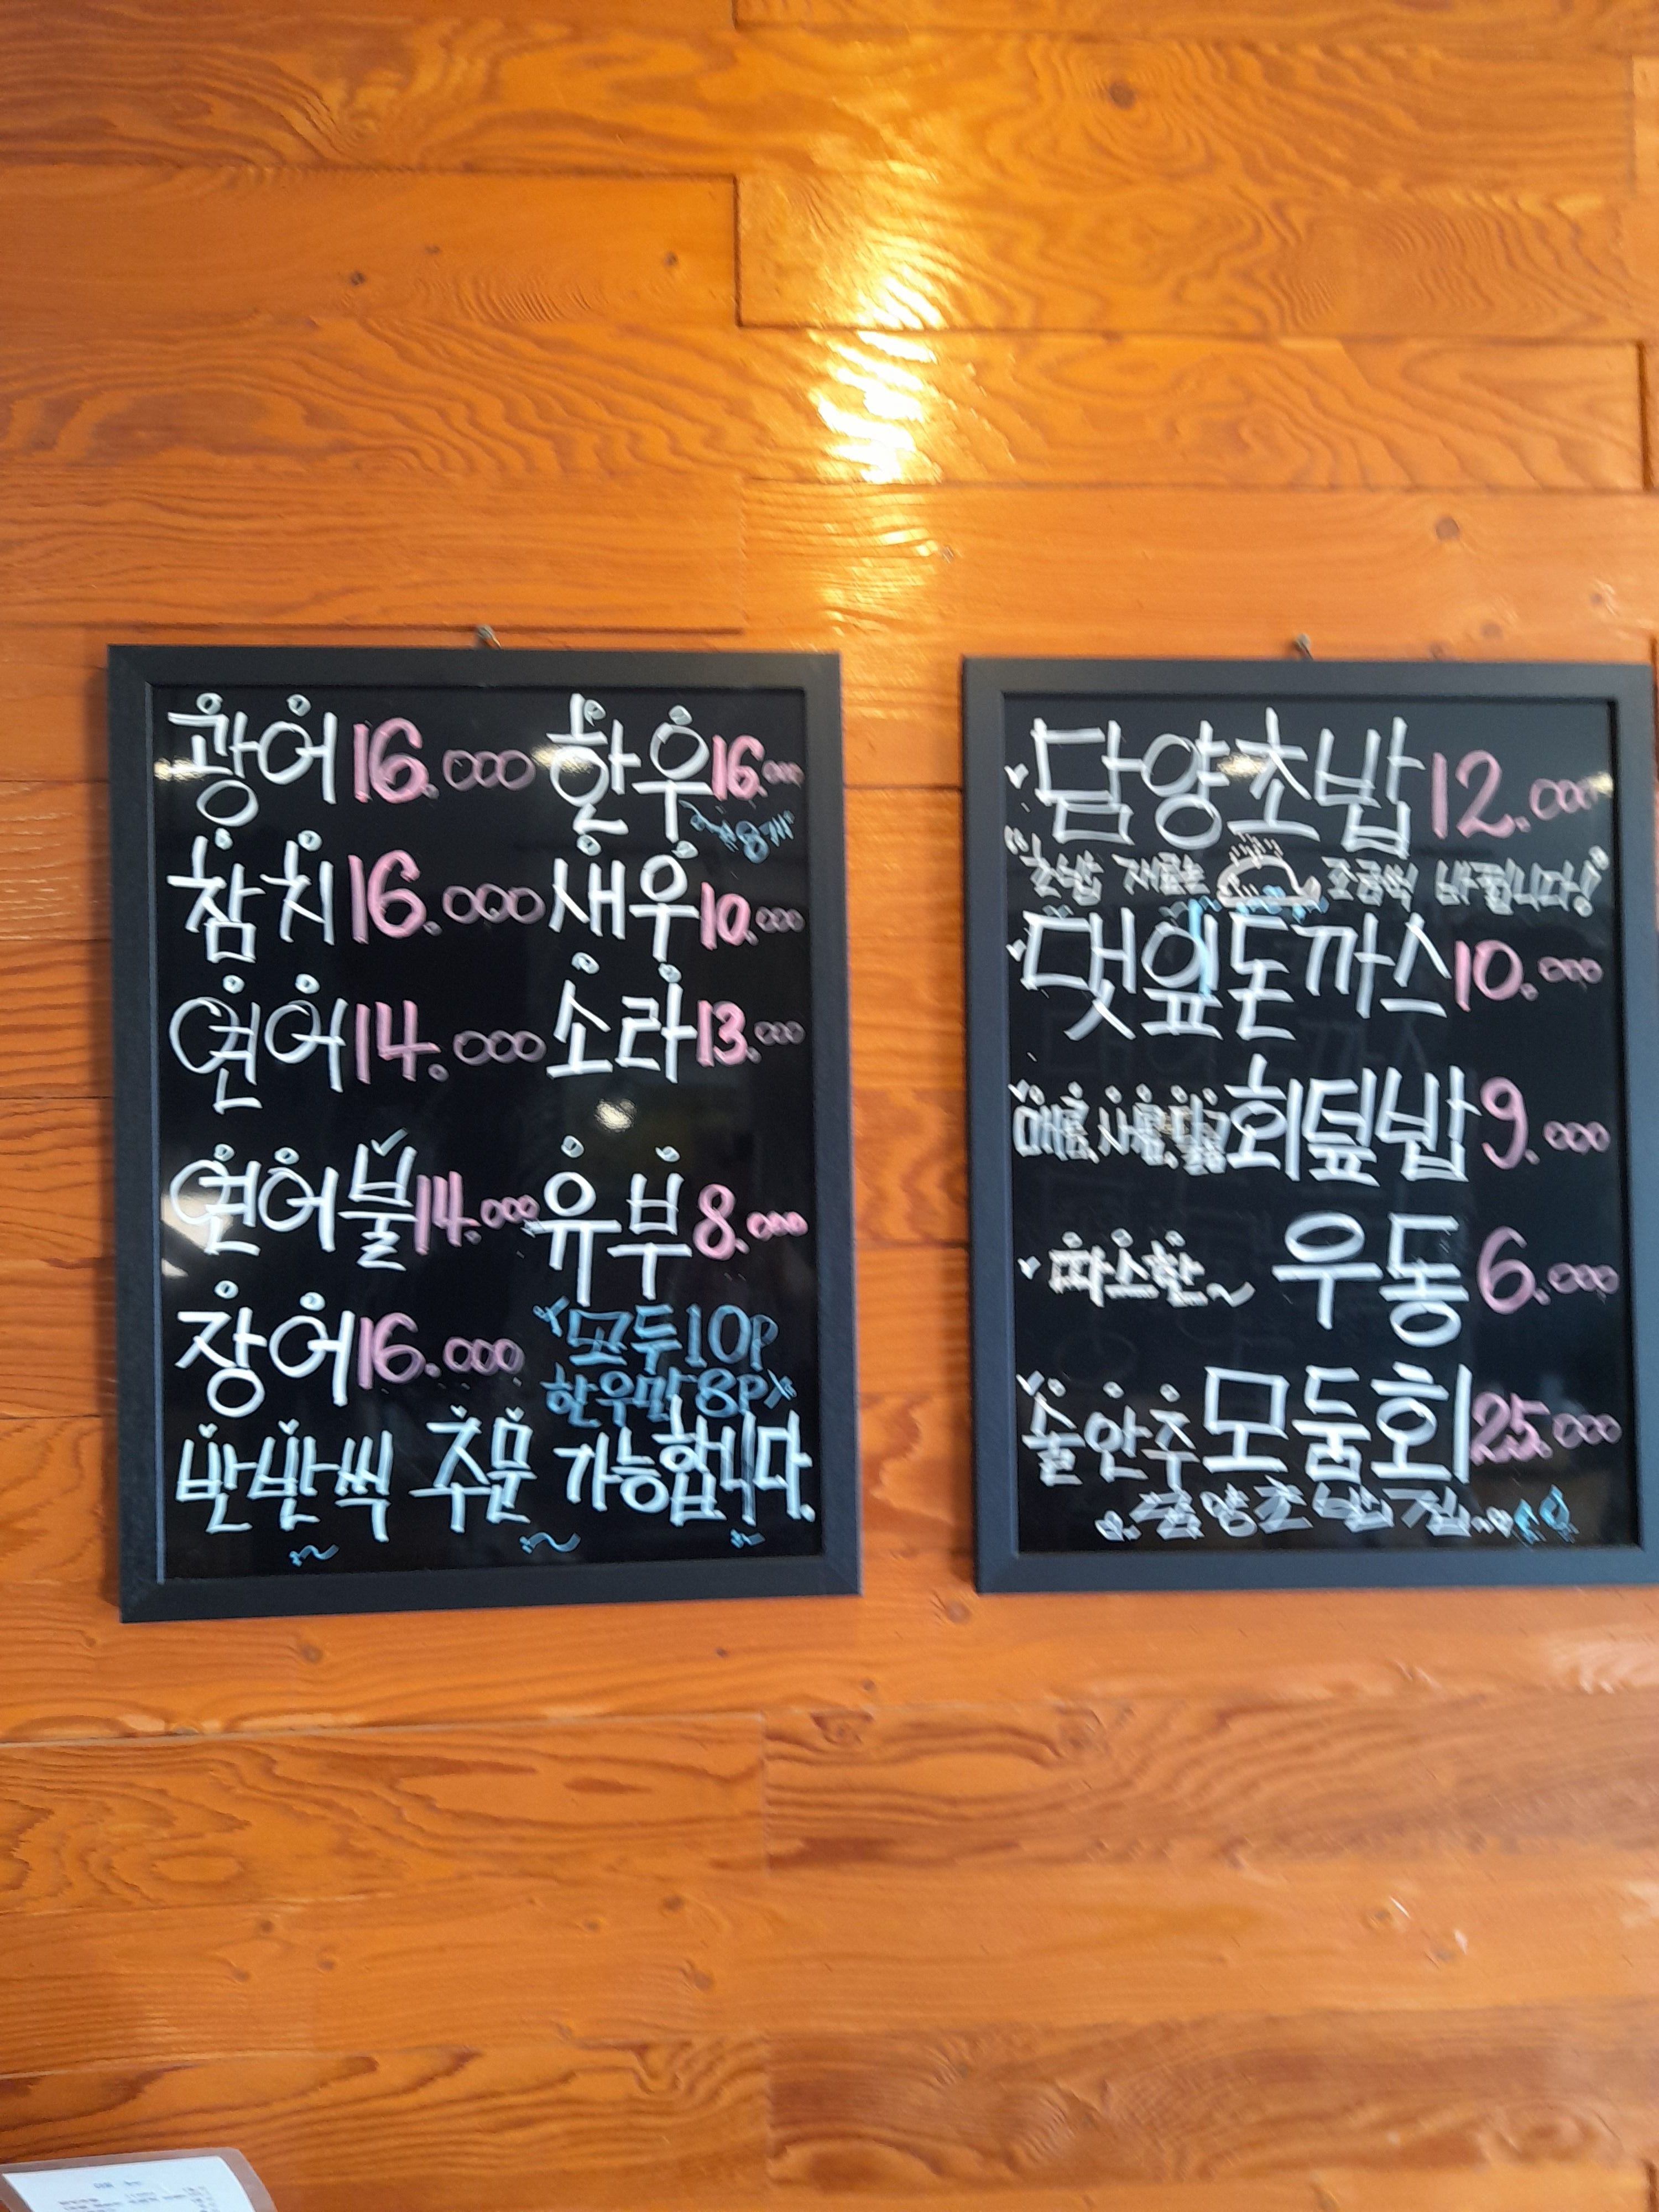 광어 16.000 한우 16.000
참치 16.000 새우 10.000
연어 14.000 소라 13.000
연어불 14.000 유부 8.000
장어 16.000 <모두 10P
한우만 8P>
반반씩 주문 가능합니다.
담양초밥 12.000
초밥 재료는 조금씩 바뀝니다!
댓잎돈까스 10.000
매콤, 새콤, 달콤 회덮밥 9.000
따스한~ 우동 6.000
술안주 모둠회 25.000
담양초밥집